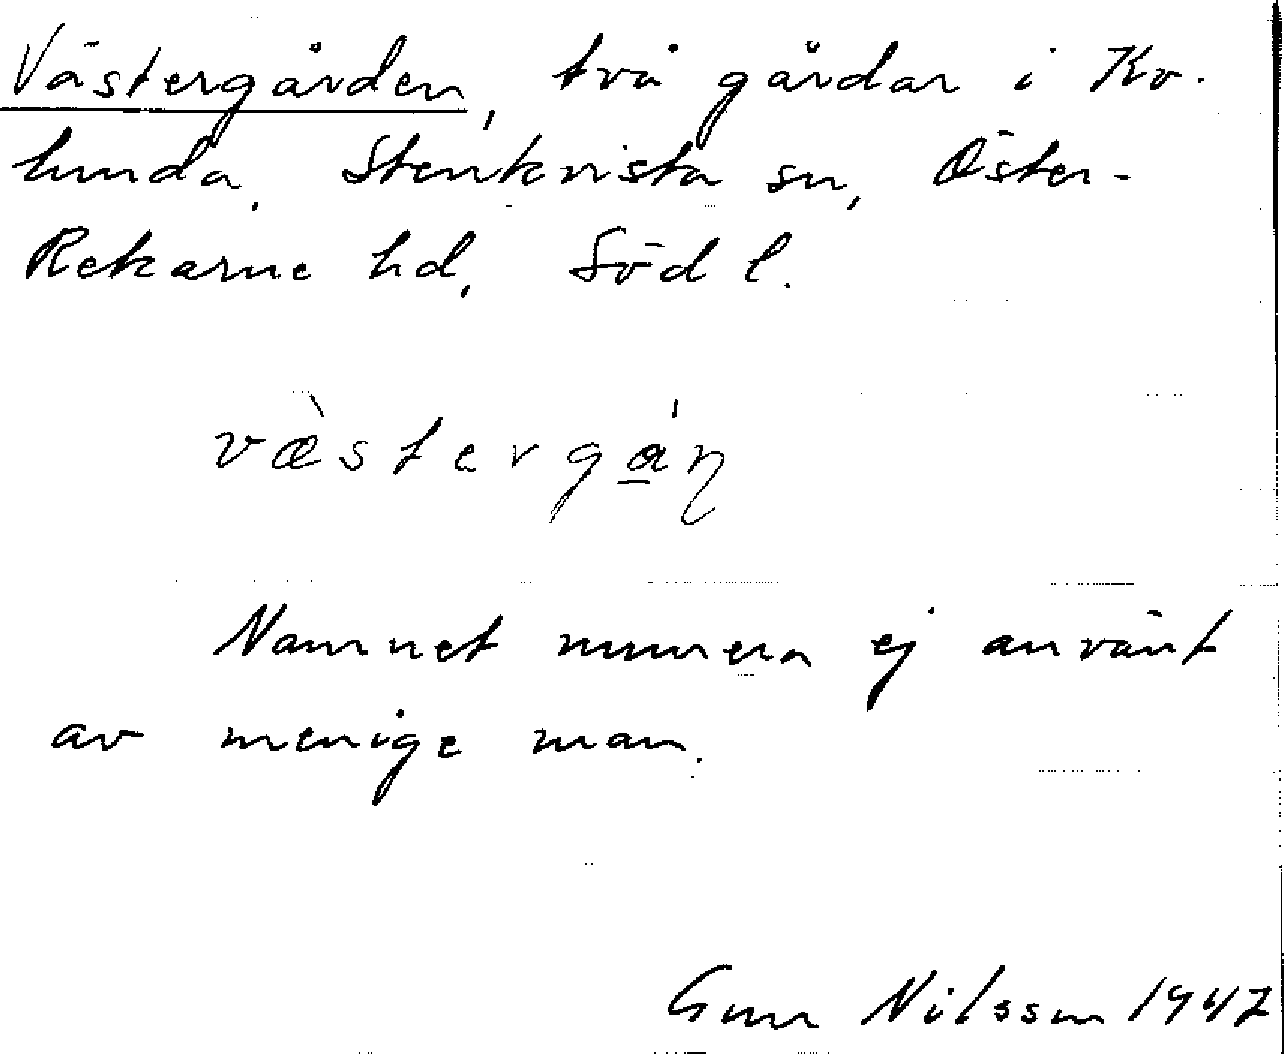 Västergården, två gårdar i Ko-
lunda, Stenkvista sn, Öster-
Rekarne hd, Söd l.
væ̀stergɑ́ɳ
Namnet numera ej använt
av menige man.
Gun Nilsson 1947